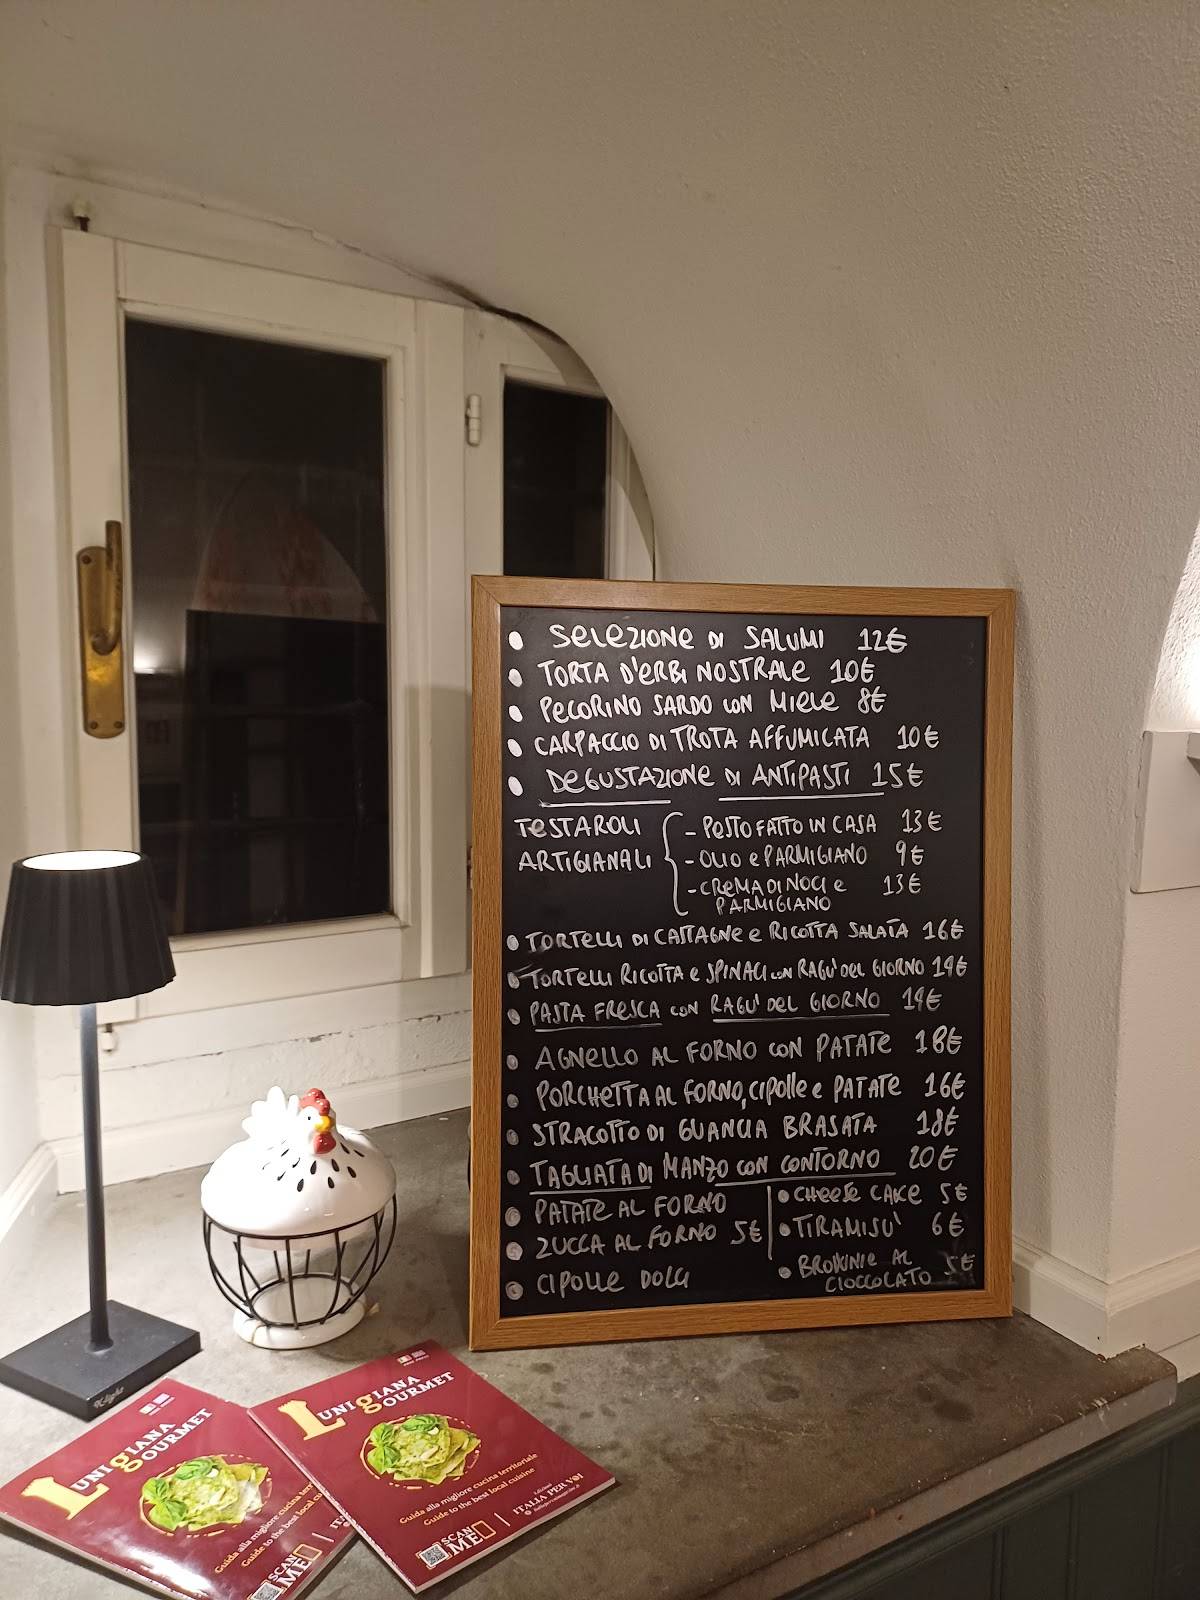 SELEZIONE DI SALUMI 12€
TORTA D'ERBI NOSTRALE 10€
PECORINO SARDO CON MIELE 8€
CARPACCIO DI TROTA AFFUMICATA 10€
DEGUSTAZIONE DI ANTIPASTI 15€
TESTAROLI
ARTIGIANALI
- PESTO FATTO IN CASA 13€
- OLIO E PARMIGIANO 9€
- CREMA DI NOCI E 13€
PARMIGIANO
TORTELLI DI CASTAGNE E RICOTTA SALATA 16€
TORTELLI RICOTTA E SPINACI CON RAGU' DEL GIORNO 14€
PASTA FRESCA CON RAGU' DEL GIORNO 14€
AGNELLO AL FORNO CON PATATE 18€
PORCHETTA AL FORNO, CIPOLLE E PATATE 16€
STRACOTTO DI GUANCIA BRASATA 18€
TAGLIATA DI MANZO CON CONTORNO 20€
PATATE AL FORNO
ZUCCA AL FORNO 5€
CIPOLLE DOLCI
CHEESE CAKE 5€
TIRAMISU' 6€
BROWNIE AL 5€
CIOCCOLATO
K-light
LUNIGIANA
GOURMET
Guida alla migliore cucina terr
Guide to the best local cuisine
SCAN
ME
ITA
LUNIGIANA
GOURMET
Guida alla migliore cucina territoriale
Guide to the best local cuisine
SCAN
ME
Edizioni
ITALIA PER VOI